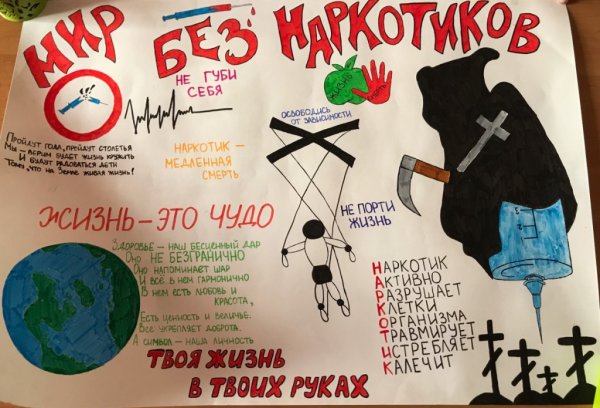 МИР БЕЗ НАРКОТИКОВ
НЕ ГУБИ
СЕБЯ
Пройдут года, пройдут столетья
Мы – верим будет жизнь кружить
И будут радоваться дети
Тому, что на Земле живая жизнь!
НАРКОТИК –
МЕДЛЕННАЯ
СМЕРТЬ
ЖИЗНЬ
ОСВОБОДИСЬ
ОТ ЗАВИСИМОСТИ
ЖИЗНЬ – ЭТО ЧУДО
НЕ ПОРТИ
ЖИЗНЬ
Здоровье – наш бесценный дар
Оно НЕ БЕЗГРАНИЧНО
Оно напоминает шар
И всё в нем гармонично
В нем есть любовь и
красота,
Есть ценность и величье.
Все укрепляет доброта.
А символ – наша личность
НАРКОТИК
АКТИВНО
РАЗРУШАЕТ
КЛЕТКИ
ОРГАНИЗМА
ТРАВМИРУЕТ
ИСТРЕБЛЯЕТ
КАЛЕЧИТ
ТВОЯ ЖИЗНЬ
В ТВОИХ РУКАХ